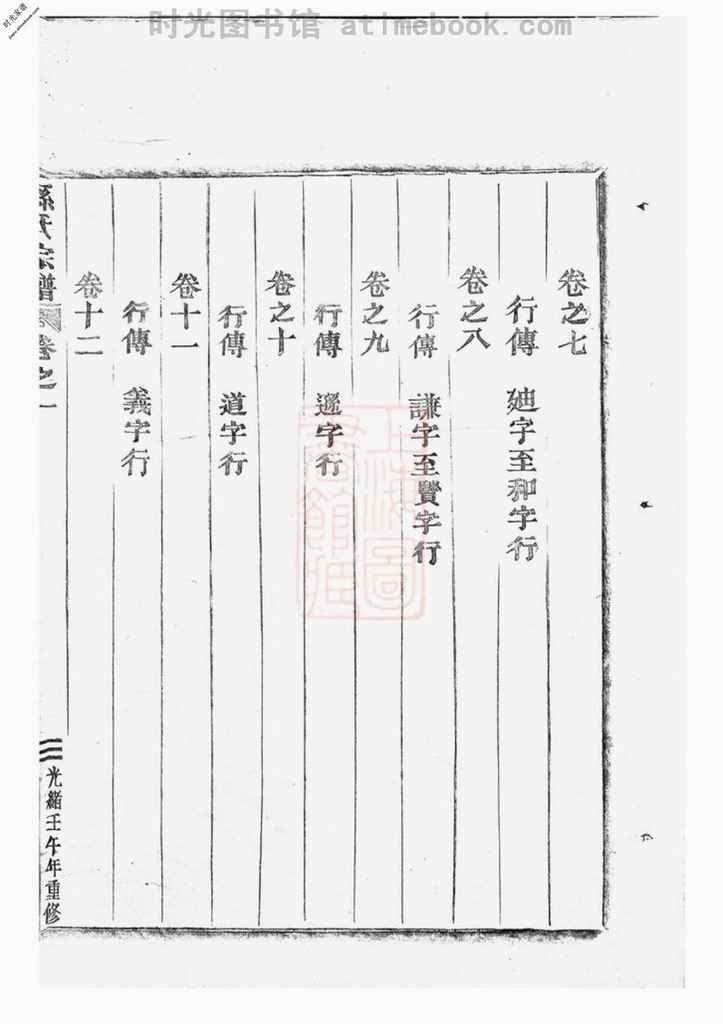 时光图书馆 atimebook.com
时光家谱
卷之七
行傳 廸字至和字行
卷之八
行傳 謙字至賢字行
卷之九
行傳 遜字行
卷之十
行傳 道字行
卷十一
行傳 義字行
卷十二
孫氏宗譜 卷之一
三 光緒壬午年重修
上海圖書館藏